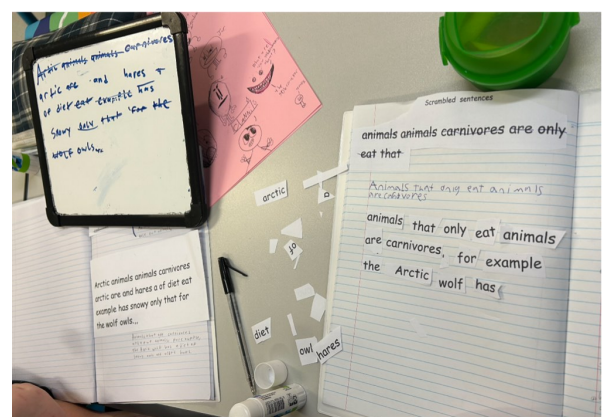 Arctic animals animals carnivores
artic are and hares
of diet eat example has
snowy only that for the
wolf owls...
Arctic animals animals carnivores
arctic are and hares a of diet eat
example has snowy only that for
the wolf owls...
arctic
of
a
diet
owl
hares
Scrambled sentences
animals animals carnivores are only
eat that
Animals that only eat animals
are carnivores
animals that only eat animals
are carnivores, for example
the Arctic wolf has